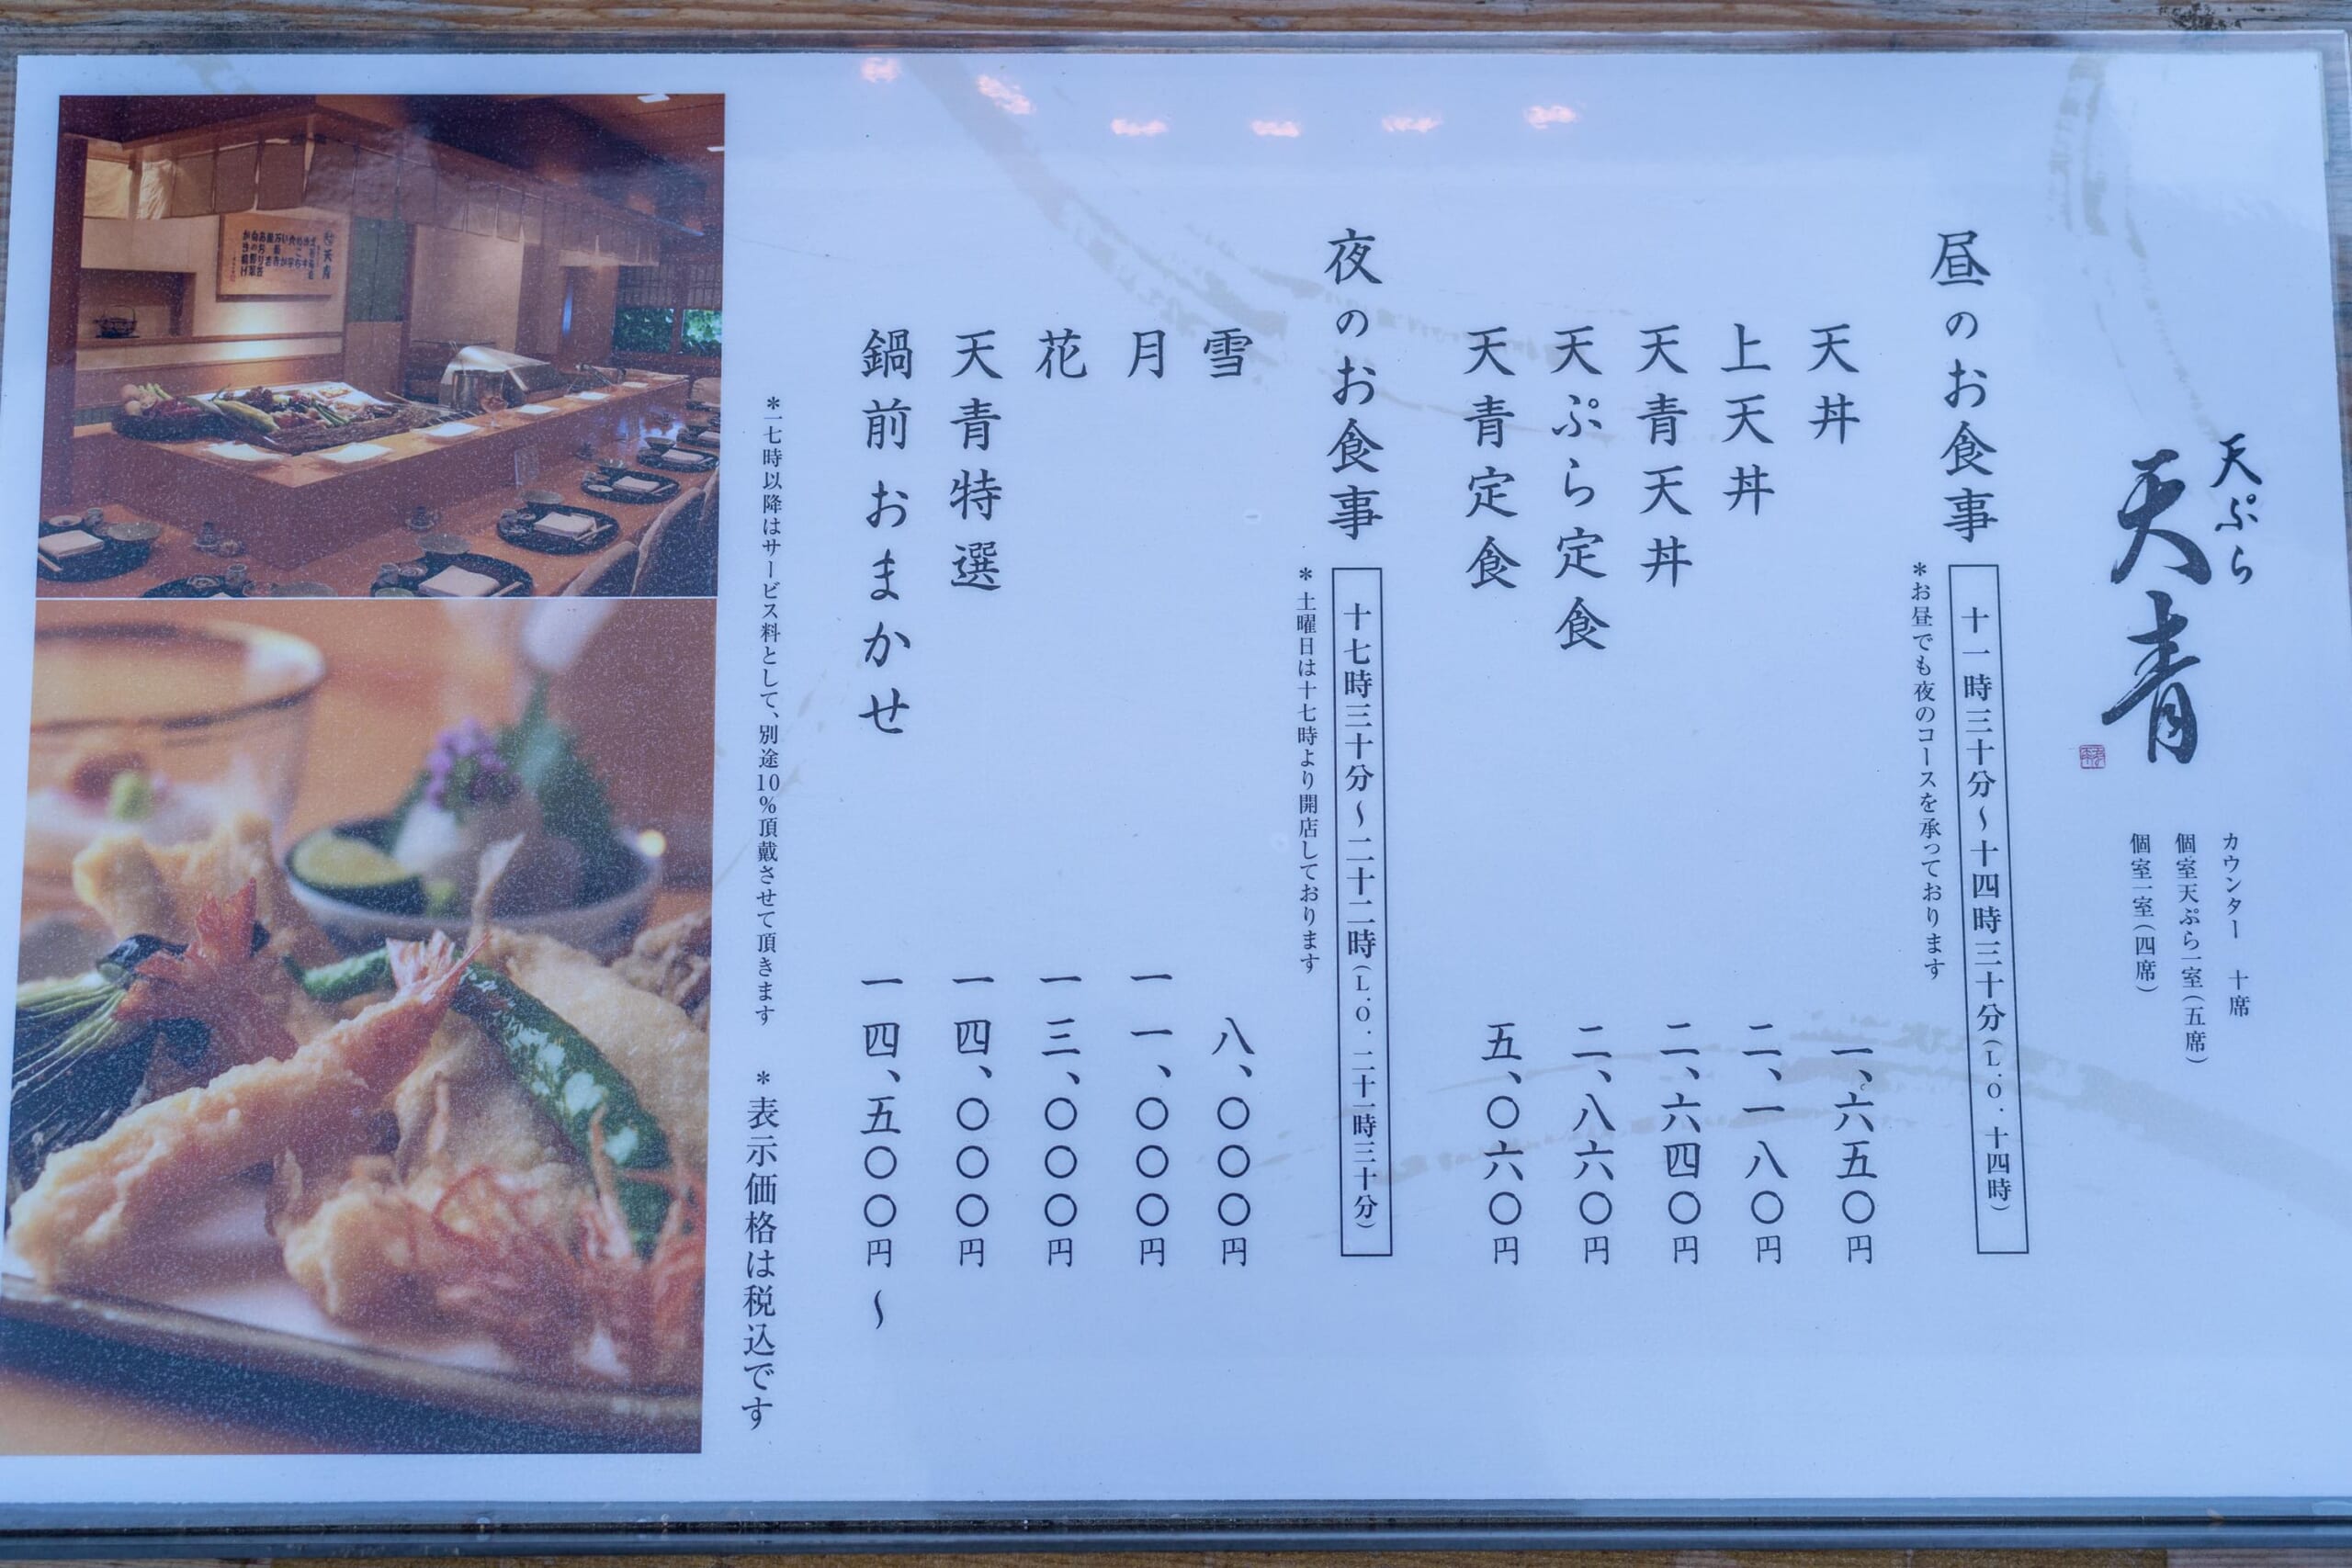 天ぷら
天青
カウンター 十席
個室天ぷら一室(五席)
個室一室(四席)
昼のお食事 十一時三十分~十四時三十分(L.O. 十四時)
*お昼でも夜のコースを承っております
天丼 一、六五〇円
上天丼 二、一八〇円
天青天丼 二、六四〇円
天ぷら定食 二、八六〇円
天青定食 五、〇六〇円
夜のお食事 十七時三十分~二十二時(L.O. 二十一時三十分)
*土曜日は十七時より開店しております
雪 八、〇〇〇円
月 一一、〇〇〇円
花 一三、〇〇〇円
天青特選 一四、〇〇〇円
鍋前おまかせ 一四、五〇〇円~
*一七時以降はサービス料として、別途10%頂戴させて頂きます *表示価格は税込です